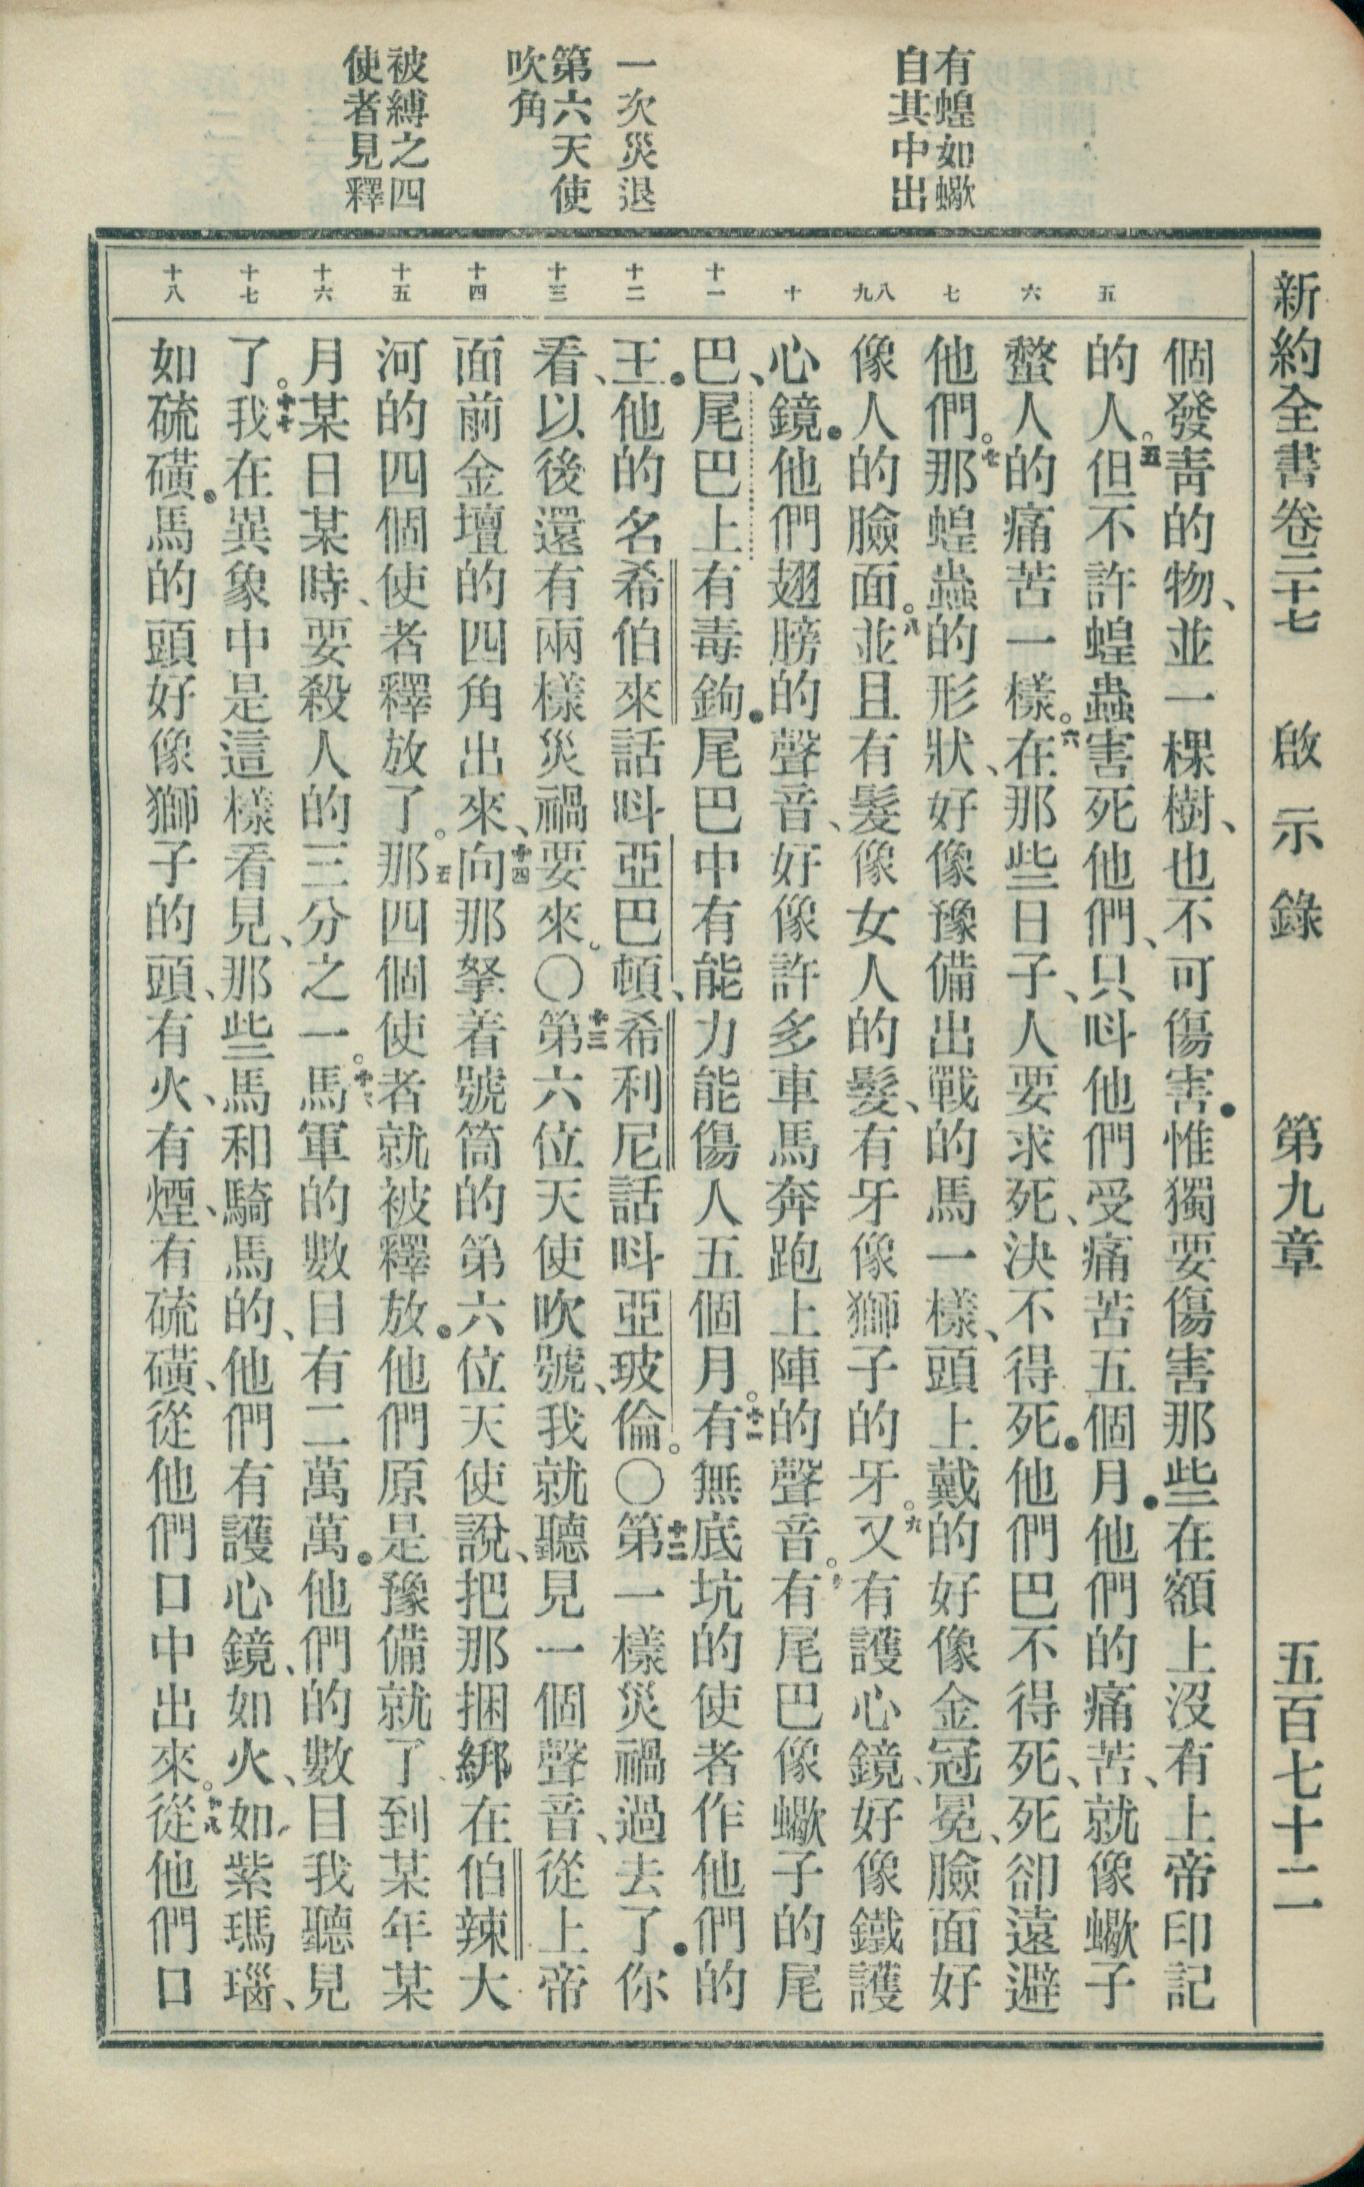 新約全書卷二十七　啟示錄　第九章　五百七十二
有蝗如蠍
自其中出
一次災退
第六天使
吹角
被縛之四
使者見釋
五
六
七
八
九
十
十一
十二
十三
十四
十五
十六
十七
十八
個發靑的物、並一棵樹、也不可傷害●惟獨要傷害那些在額上沒有上帝印記
的人。五但不許蝗蟲害死他們、只呌他們受痛苦五個月●他們的痛苦、就像蠍子
螫人的痛苦一樣。六在那些日子、人要求死、決不得死●他們巴不得死、死卻遠避
他們。七那蝗蟲的形狀、好像豫備出戰的馬一樣、頭上戴的好像金冠冕、臉面好
像人的臉面。八並且有髮像女人的髮、有牙像獅子的牙。九又有護心鏡、好像鐵護
心鏡●他們翅膀的聲音、好像許多車馬奔跑上陣的聲音。十有尾巴像蠍子的尾
巴、尾巴上有毒鉤●尾巴中有能力能傷人五個月。十一有無底坑的使者作他們的
王●他的名希伯來話呌亞巴頓、希利尼話呌亞玻倫。〇十二第一樣災禍過去了●你
看、以後還有兩樣災禍要來。〇十三第六位天使吹號、我就聽見一個聲音、從上帝
面前金壇的四角出來、十四向那拏着號筒的第六位天使說、把那捆綁在伯辣大
河的四個使者釋放了。十五那四個使者就被釋放●他們原是豫備就了到某年某
月某日某時、要殺人的三分之一。十六馬軍的數目有二萬萬●他們的數目我聽見
了。十七我在異象中是這樣看見、那些馬和騎馬的、他們有護心鏡、如火、如紫瑪瑙、
如硫磺●馬的頭好像獅子的頭、有火、有煙、有硫磺、從他們口中出來。十八從他們口